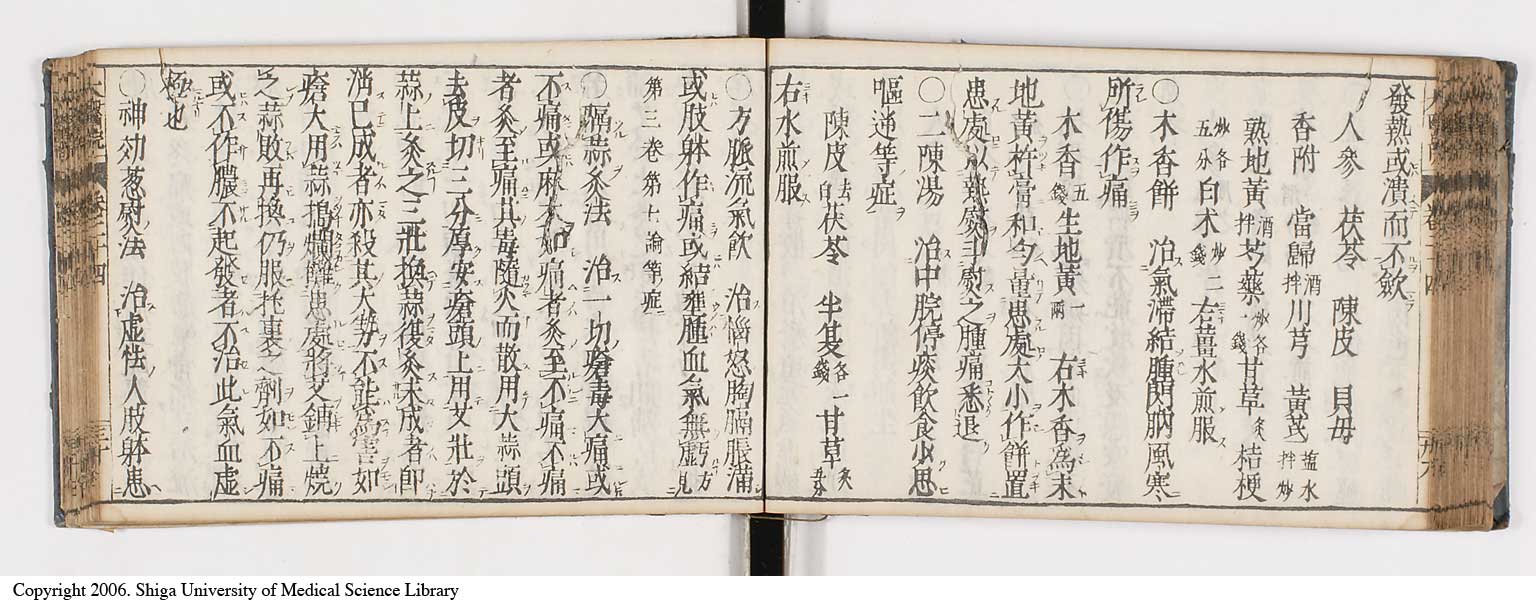 發熱或潰而不斂
人參　茯苓　陳皮　貝母
香附　當歸酒拌川芎　黃芪鹽水拌炒
熟地黃酒拌芍藥炒各錢甘草炙桔梗
炒各五分白朮炒二錢右薑水煎服
○木香餅　治氣滯結腫閃肭風寒
所傷作痛
木香五錢生地黃一兩　右木香為末
地黃杵膏和勻量患處大小作餅置
患處以熱熨斗熨之腫痛悉退
○二陳湯　治中脘停痰飲食少思
嘔逆等症
陳皮去白茯苓　半夏各一錢甘草炙五分
右水煎服
○方脈流氣飲　治惱怒胸膈脹滿
或肢躰作痛或結壅腫血氣無虧方見
第三卷第七論等症
○隔蒜灸法　治一切瘡毒大痛或
不痛或麻木如痛者灸至不痛不痛
者灸至痛其毒隨火而散用大蒜頭
去皮切三分厚安瘡頭上用艾壯於
蒜上灸之三壯換蒜復灸未成者即
消已成者亦殺其大勢不能為害如
瘡大用蒜搗爛攤患處將艾鋪上燒
之蒜敗再換仍服托裏之劑如不痛
或不作膿不起發者不治此氣血虛
極也
○神効葱熨法　治虛怯人肢躰患
Copyright 2006. Shiga University of Medical Science Library